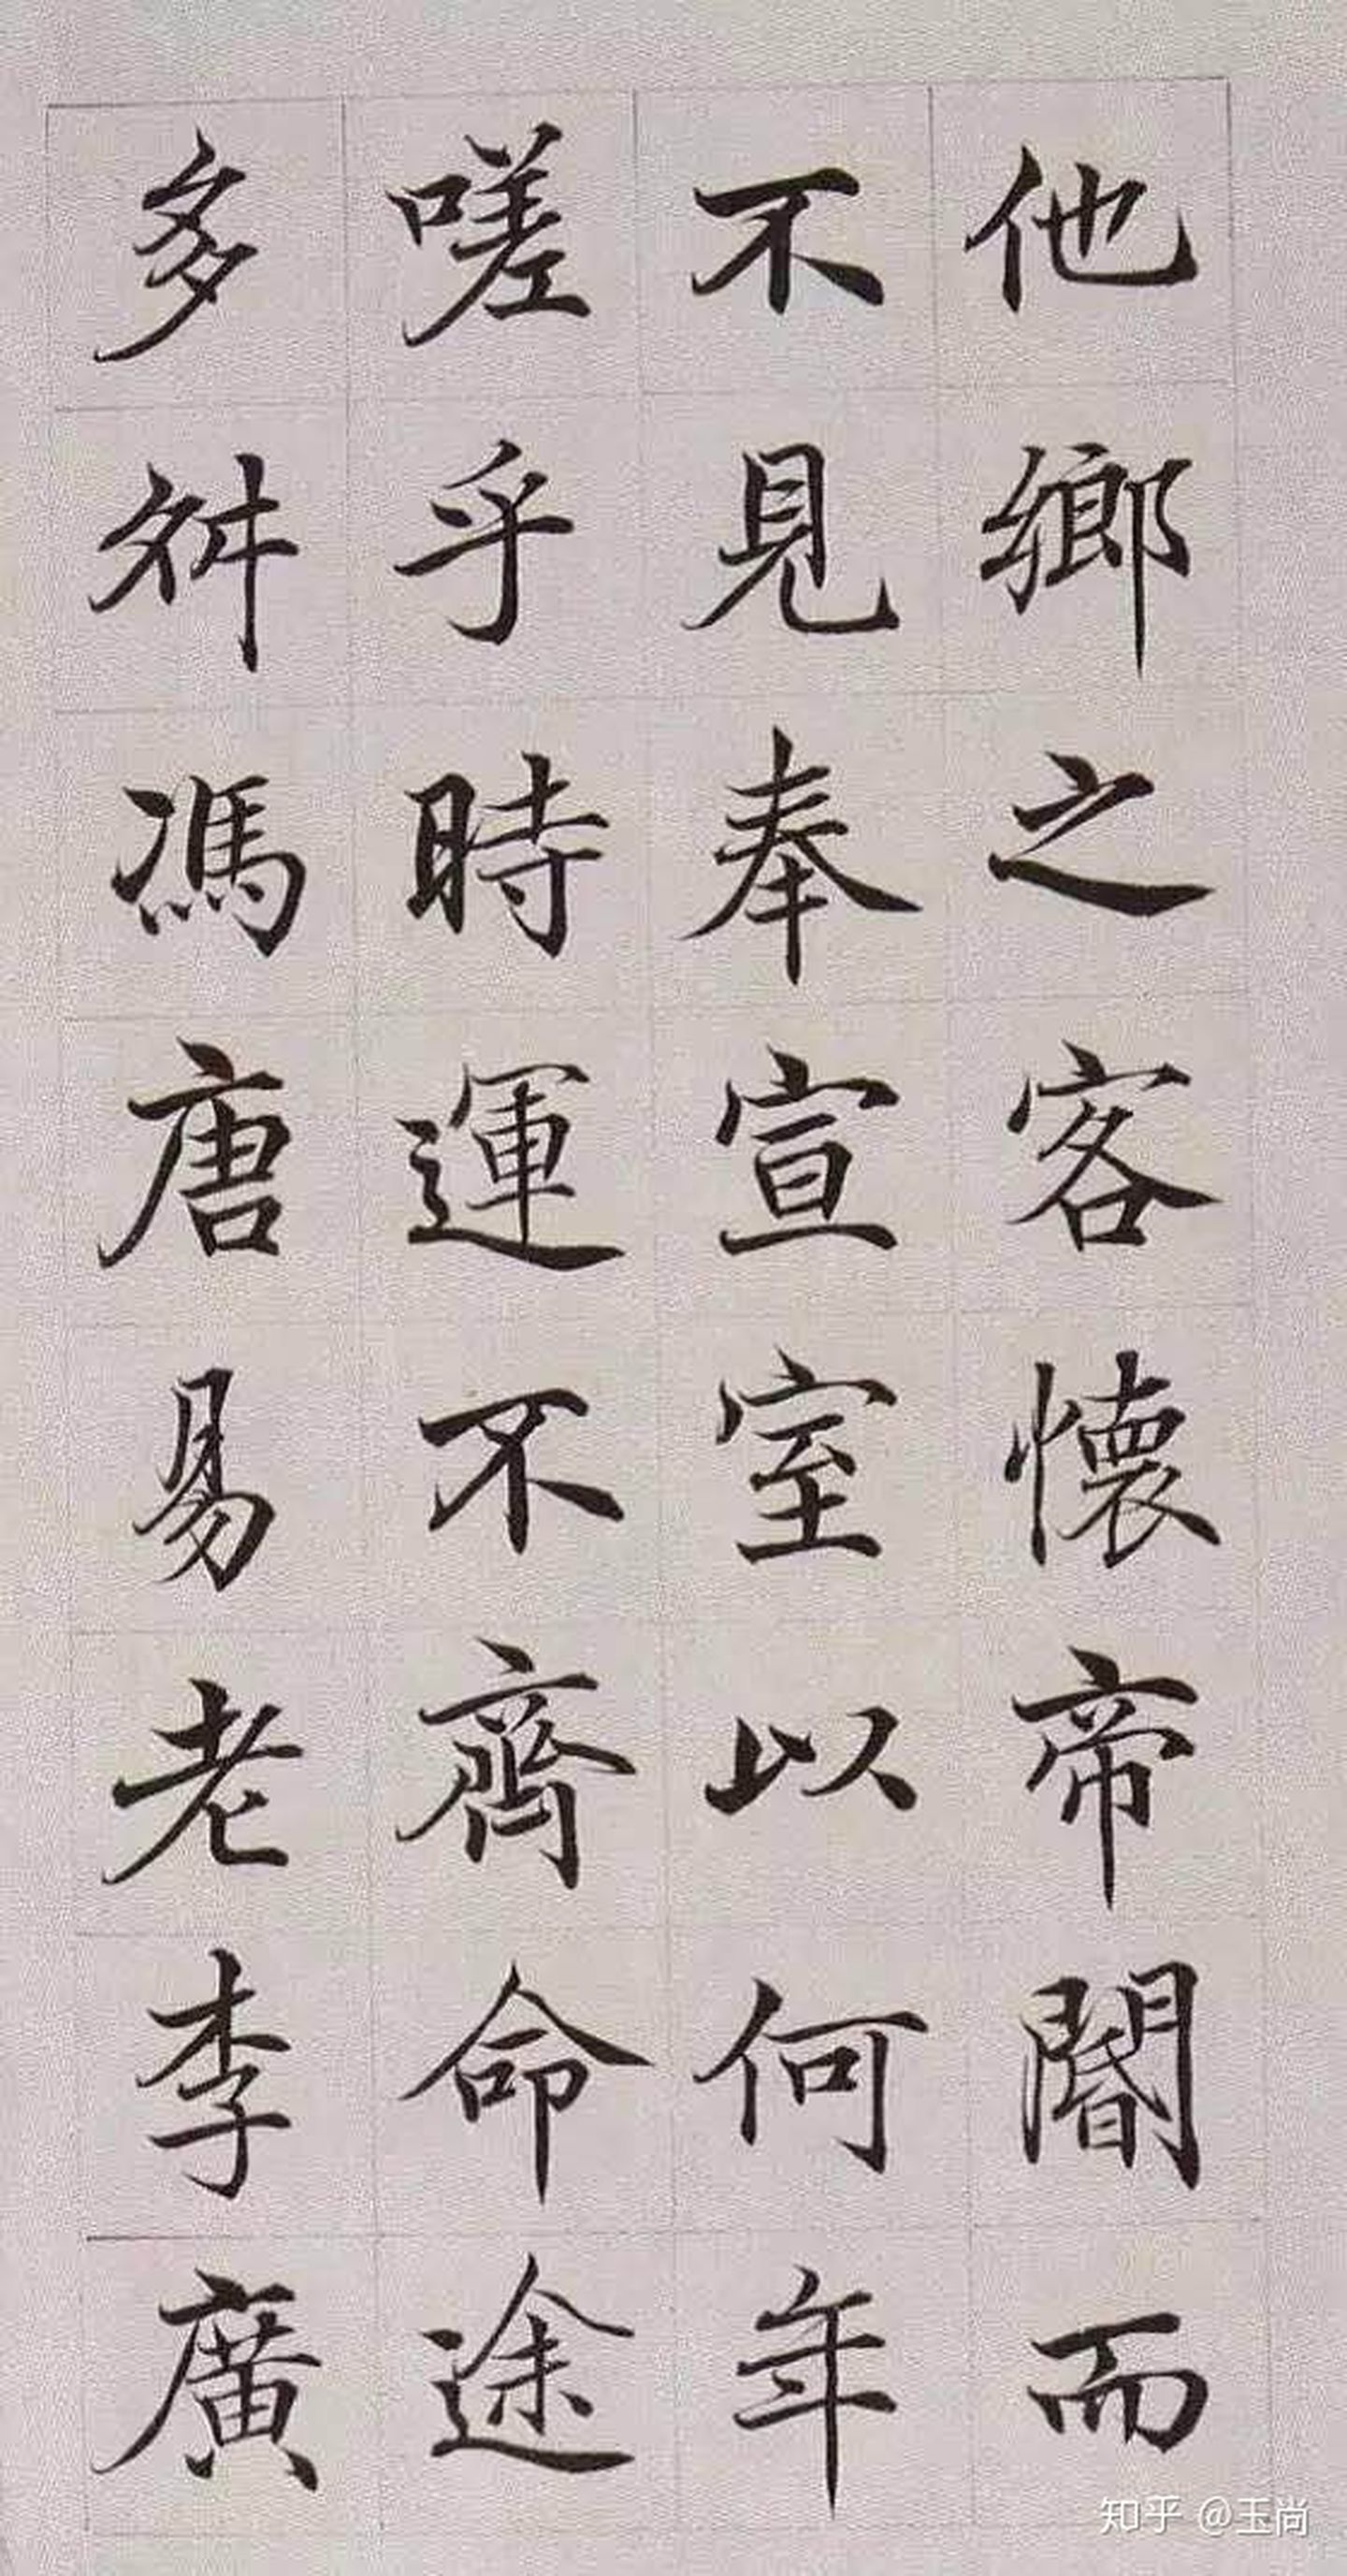 他鄉之客懷帝閽而
不見奉宣室以何年
嗟乎時運不齊命途
多舛馮唐易老李廣
知乎 @玉尚